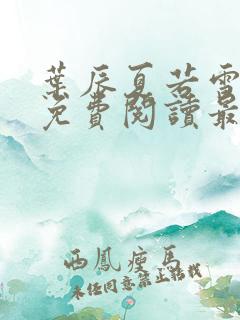 葉辰夏若雪
免費閱讀最
西鳳瘦馬
未经同意禁止转载